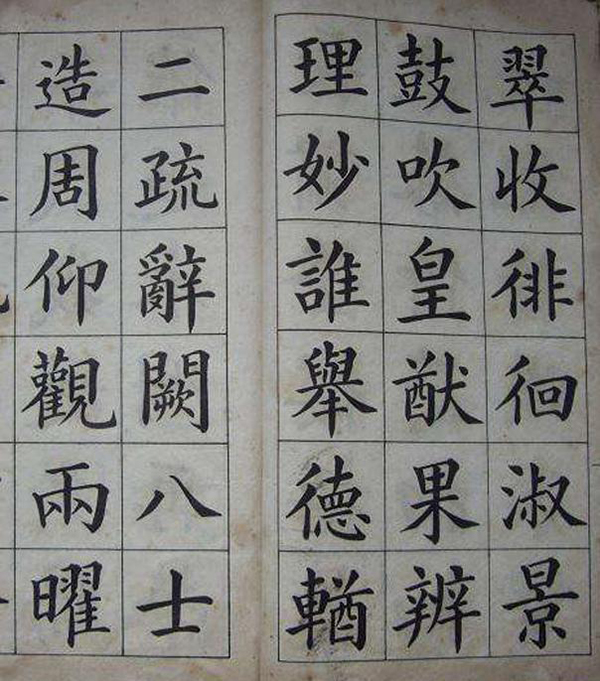 翠收徘徊淑景
鼓吹皇猷果辨
理妙誰舉德輶
二疏辭闕八士
造周仰觀兩曜